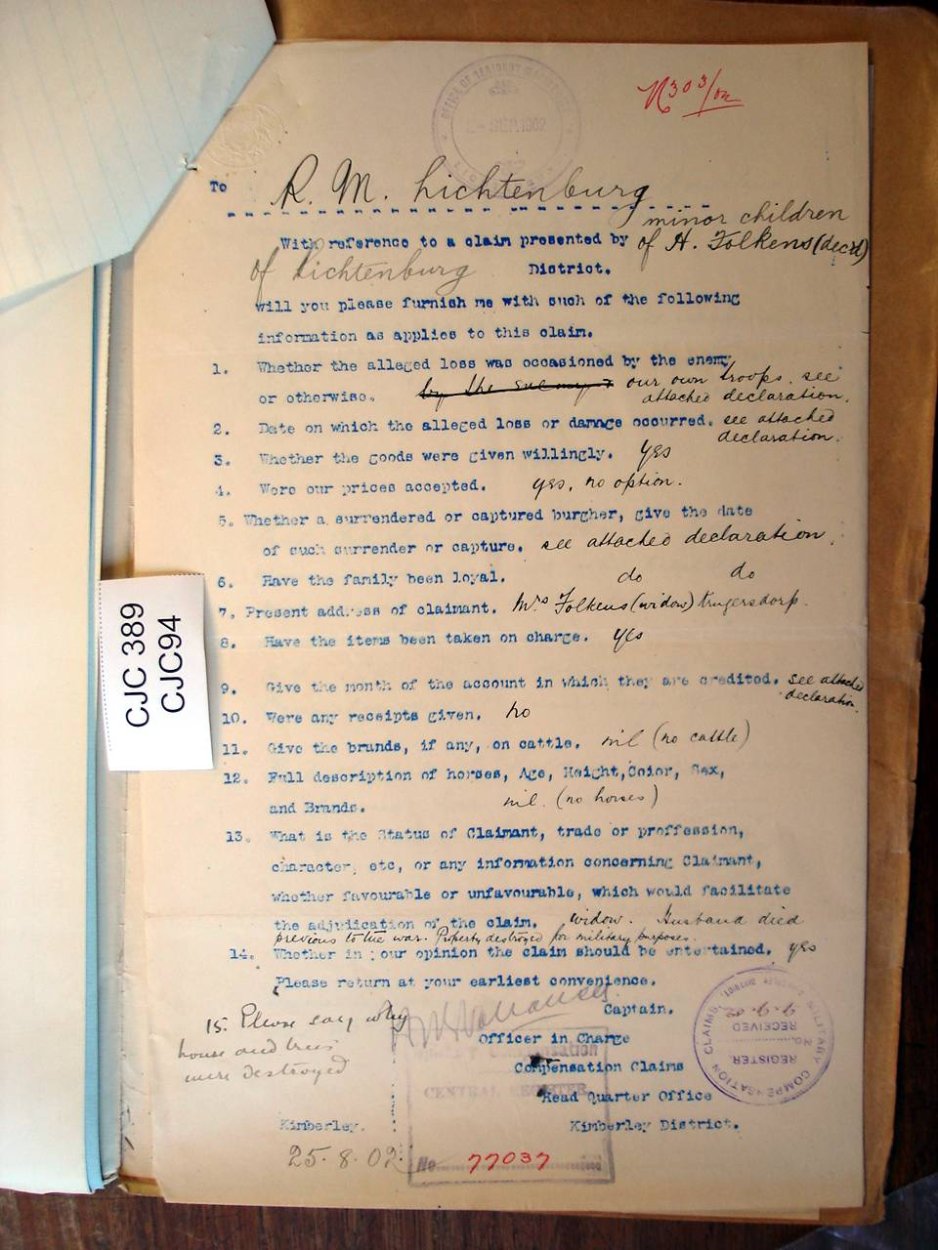 N303/02
SEP 1902
To R. M. Lichtenburg
minor children
With reference to a claim presented by of H. Folkens (decd)
of Lichtenburg District.
will you please furnish me with such of the following
information as applies to this claim.
1. Whether the alleged loss was occasioned by the enemy
or otherwise. by the enemy our own troops. see
attached declaration.
2. Date on which the alleged loss or damage occurred. see attached
declaration.
3. Whether the goods were given willingly. yes
4. Were our prices accepted. yes, no option.
5. Whether a surrendered or captured burgher, give the date
of such surrender or capture. see attached declaration.
6. Have the family been loyal. do do
7. Present address of claimant. Mrs Folkens (widow) Krugersdorp.
8. Have the items been taken on charge. yes
CJC 389
CJC94
9. Give the month of the account in which they are credited. see attached
declaration.
10. Were any receipts given. no
11. Give the brands, if any, on cattle. nil (no cattle)
12. Full description of horses, Age, Height, Color, Sex,
and Brands. nil. (no horses)
13. What is the Status of Claimant, trade or proffession,
character, etc, or any information concerning Claimant,
whether favourable or unfavourable, which would facilitate
the adjudication of the claim. widow. Husband died
previous to the war. Property destroyed for military purposes.
14. Whether in your opinion the claim should be entertained. yes
Please return at your earliest convenience.
Captain.
15. Please say why
house and trees
were destroyed
Officer in Charge
Compensation Claims
Head Quarter Office
Kimberley District.
CENTRAL REGISTER
No. 77037
Kimberley.
25.8.02.
MILITARY COMPENSATION CLAIMS
REGISTER.
No.
RECEIVED
9-9-02